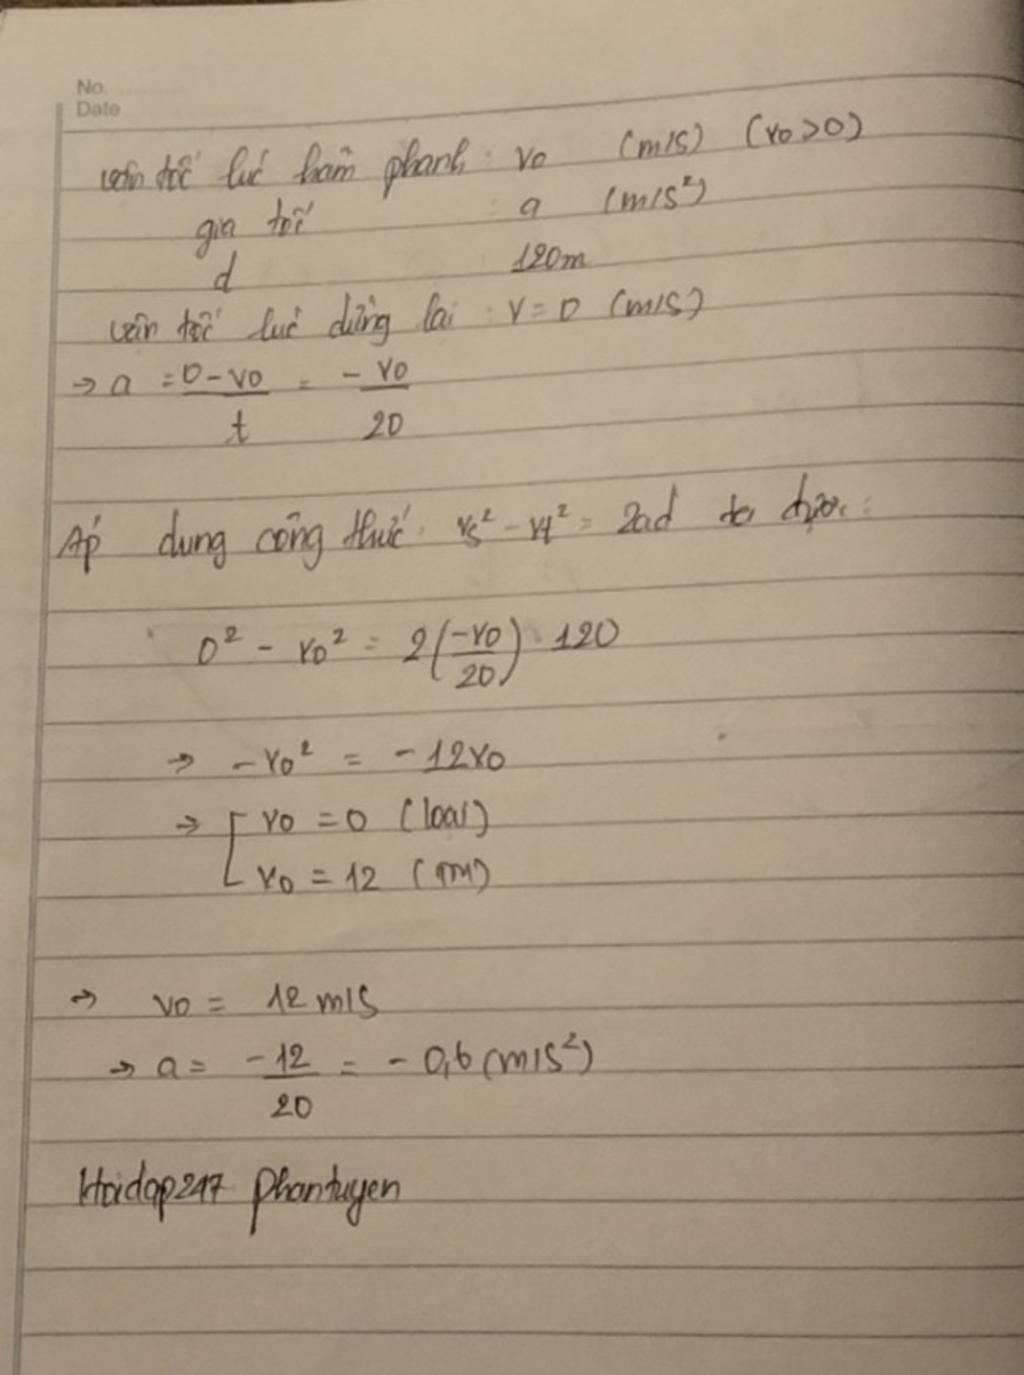 No.
Date
vận tốc lúc hãm phanh : vo (m/s) (vo>0)
gia tốc : a (m/s²)
d 120m
vận tốc lúc dừng lại : v = 0 (m/s)
→ a = (0-vo)/t = -vo/20
Áp dụng công thức : vs² - vt² = 2ad ta được :
0² - vo² = 2(-vo/20) . 120
→ -vo² = -12vo
→ [ vo = 0 (loại)
[ vo = 12 (tm)
→ vo = 12 m/s
→ a = -12/20 = -0,6 (m/s²)
Hoidap247 Phantuyen